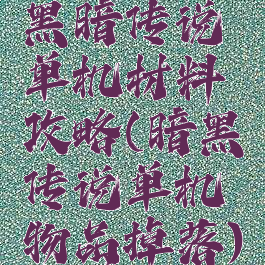 黑暗传说
单机材料
攻略(暗黑
传说单机
物品掉落)